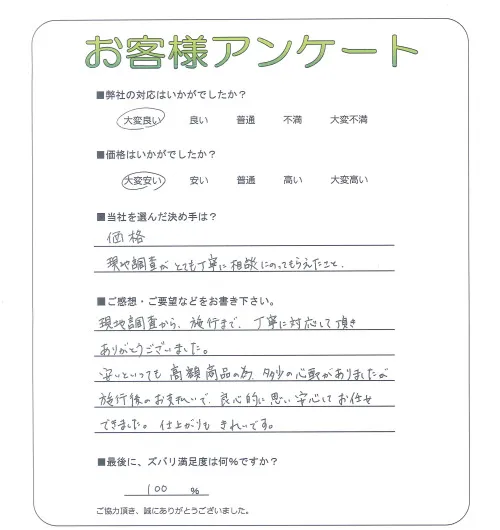 お客様アンケート
■弊社の対応はいかがでしたか？
大変良い 良い 普通 不満 大変不満
■価格はいかがでしたか？
大変安い 安い 普通 高い 大変高い
■当社を選んだ決め手は？
価格
現地調査がとても丁寧に相談にのってもらえたこと、
■ご感想・ご要望などをお書き下さい。
現地調査から、施行まで、丁寧に対応して頂き
ありがとうございました。
安いといっても高額商品の為、多少の心配がありましたが
施行後のお支払いで、良心的に思い安心してお任せ
できました。仕上がりもきれいです。
■最後に、ズバリ満足度は何%ですか？
100 %
ご協力頂き、誠にありがとうございました。